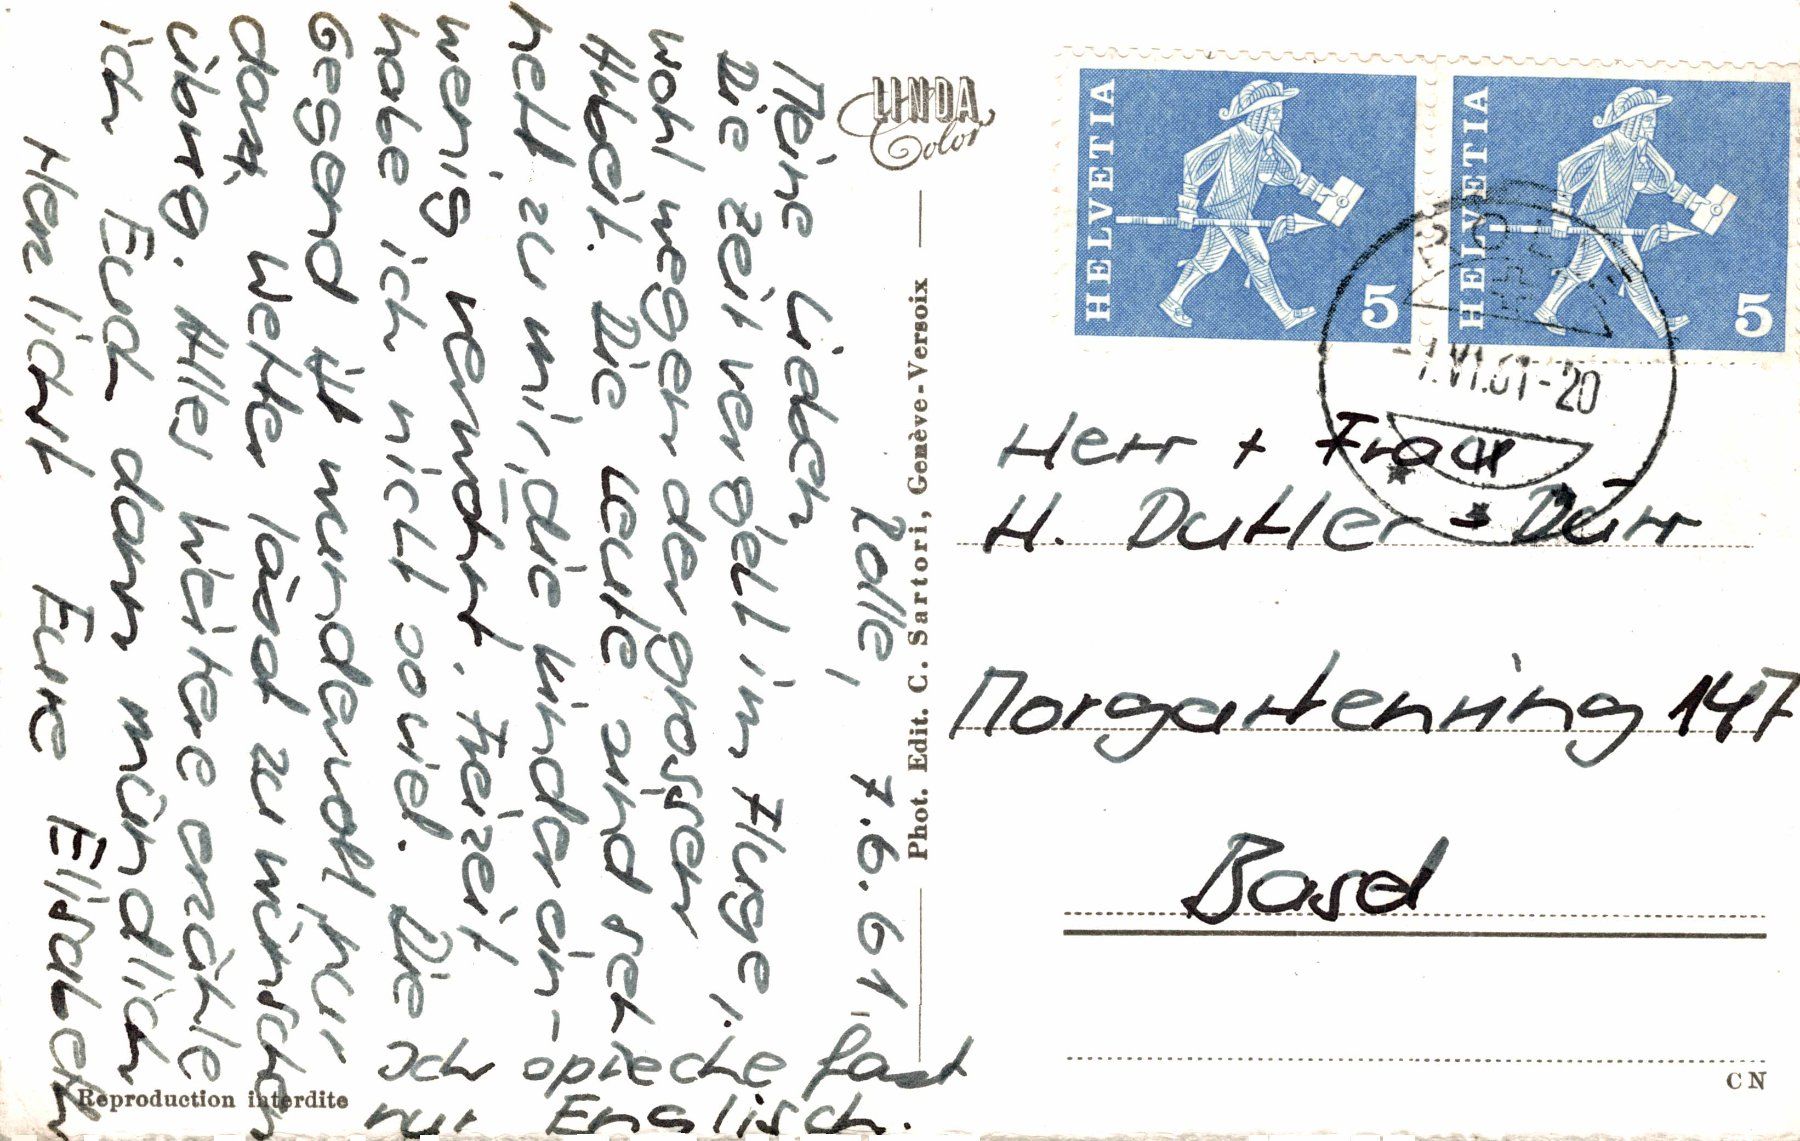 Rolle, 7.6.61
Meine Lieben,
Die Zeit vergeht im Fluge,
wohl wegen der grossen
Arbeit. Die Leute sind seh
nett zu mir, die Kinder ein-
wenig verwöhnt. Freizeit
habe ich nicht soviel. Die
Gegend ist wundervoll nur
das Wetter lässt zu wünschen
übrig. Alles weitere erzähle
ich Euch dann mündlich
Herzlichst Eure Elisabeth
Ich spreche fast
nur Englisch.
LINDA
Color
Phot. Edit. C. Sartori, Genève-Versoix
Reproduction interdite
HELVETIA 5
HELVETIA 5
VI.61-20
Herr + Frau
H. Dutler-Dürr
Morgartenring 147
Basel
CN